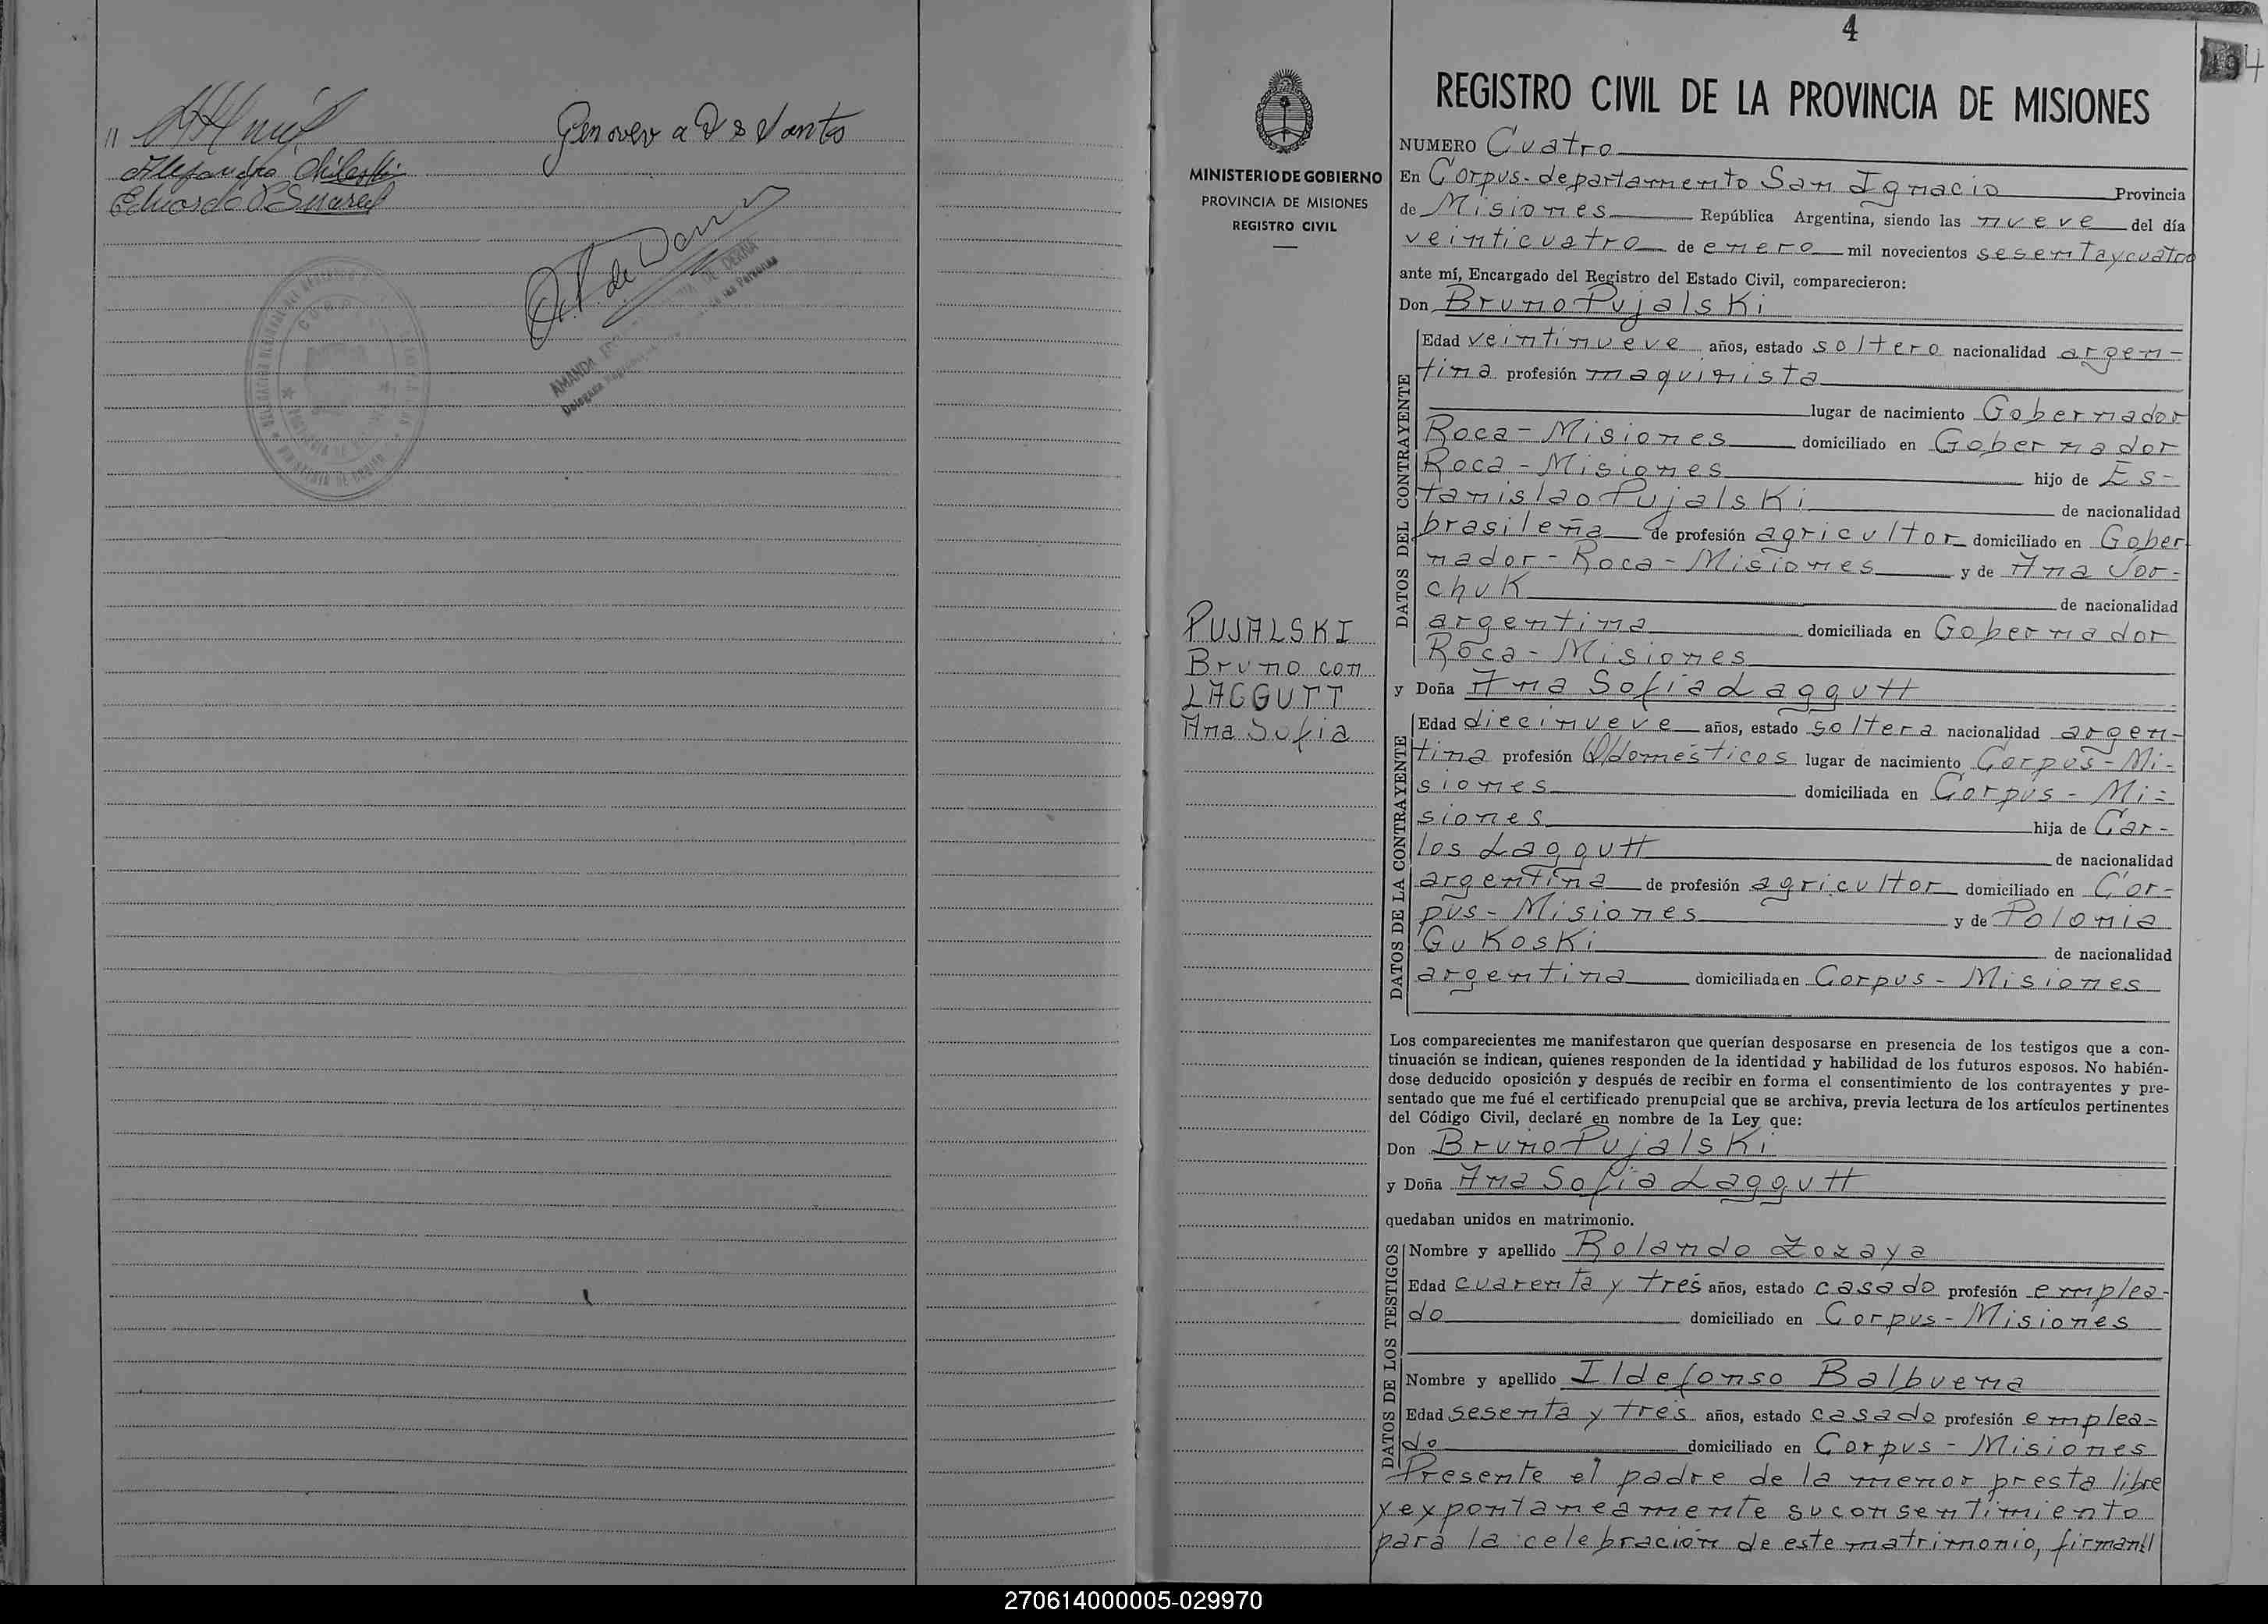 Genoveva Dos Santos
Alejandro
Eduardo
A. F. de Dern
AMANDA
DE DERNA
de las Personas
4
4
REGISTRO CIVIL DE LA PROVINCIA DE MISIONES
MINISTERIO DE GOBIERNO
PROVINCIA DE MISIONES
REGISTRO CIVIL
PUJALSKI
Bruno con
LAGGUTT
Ana Sofia
NUMERO Cuatro
En Corpus-departamento San Ignacio Provincia
de Misiones República Argentina, siendo las nueve del día
veinticuatro de enero mil novecientos sesentaycuatro
ante mí, Encargado del Registro del Estado Civil, comparecieron:
Don Bruno Pujalski
DATOS DEL CONTRAYENTE
Edad veintinueve años, estado soltero nacionalidad argen-
tina profesión maquinista
lugar de nacimiento Gobernador
Roca-Misiones domiciliado en Gobernador
Roca-Misiones hijo de Es-
tanislao Pujalski de nacionalidad
brasileña de profesión agricultor domiciliado en Gober
nador-Roca-Misiones y de Ana Vor-
chuk de nacionalidad
argentina domiciliada en Gobernador
Roca-Misiones
y Doña Ana Sofia Laggutt
DATOS DE LA CONTRAYENTE
Edad diecinueve años, estado soltera nacionalidad argen-
tina profesión Q/domésticos lugar de nacimiento Corpus-Mi-
siones domiciliada en Corpus-Mi-
siones hija de Car-
los Laggutt de nacionalidad
argentina de profesión agricultor domiciliado en Cor-
pus-Misiones y de Polonia
Gukoski de nacionalidad
argentina domiciliada en Corpus-Misiones
Los comparecientes me manifestaron que querían desposarse en presencia de los testigos que a con-
tinuación se indican, quienes responden de la identidad y habilidad de los futuros esposos. No habién-
dose deducido oposición y después de recibir en forma el consentimiento de los contrayentes y pre-
sentado que me fué el certificado prenupcial que se archiva, previa lectura de los artículos pertinentes
del Código Civil, declaré en nombre de la Ley que:
Don Bruno Pujalski
y Doña Ana Sofia Laggutt
quedaban unidos en matrimonio.
DATOS DE LOS TESTIGOS
Nombre y apellido Rolando Zozaya
Edad cuarenta y tres años, estado casado profesión emplea-
do domiciliado en Corpus-Misiones
Nombre y apellido Ildefonso Balbuena
Edad sesenta y tres años, estado casado profesión emplea-
do domiciliado en Corpus-Misiones
Presente el padre de la menor presta libre
y expontaneamente su consentimiento
para la celebración de este matrimonio, firman//
270614000005-029970